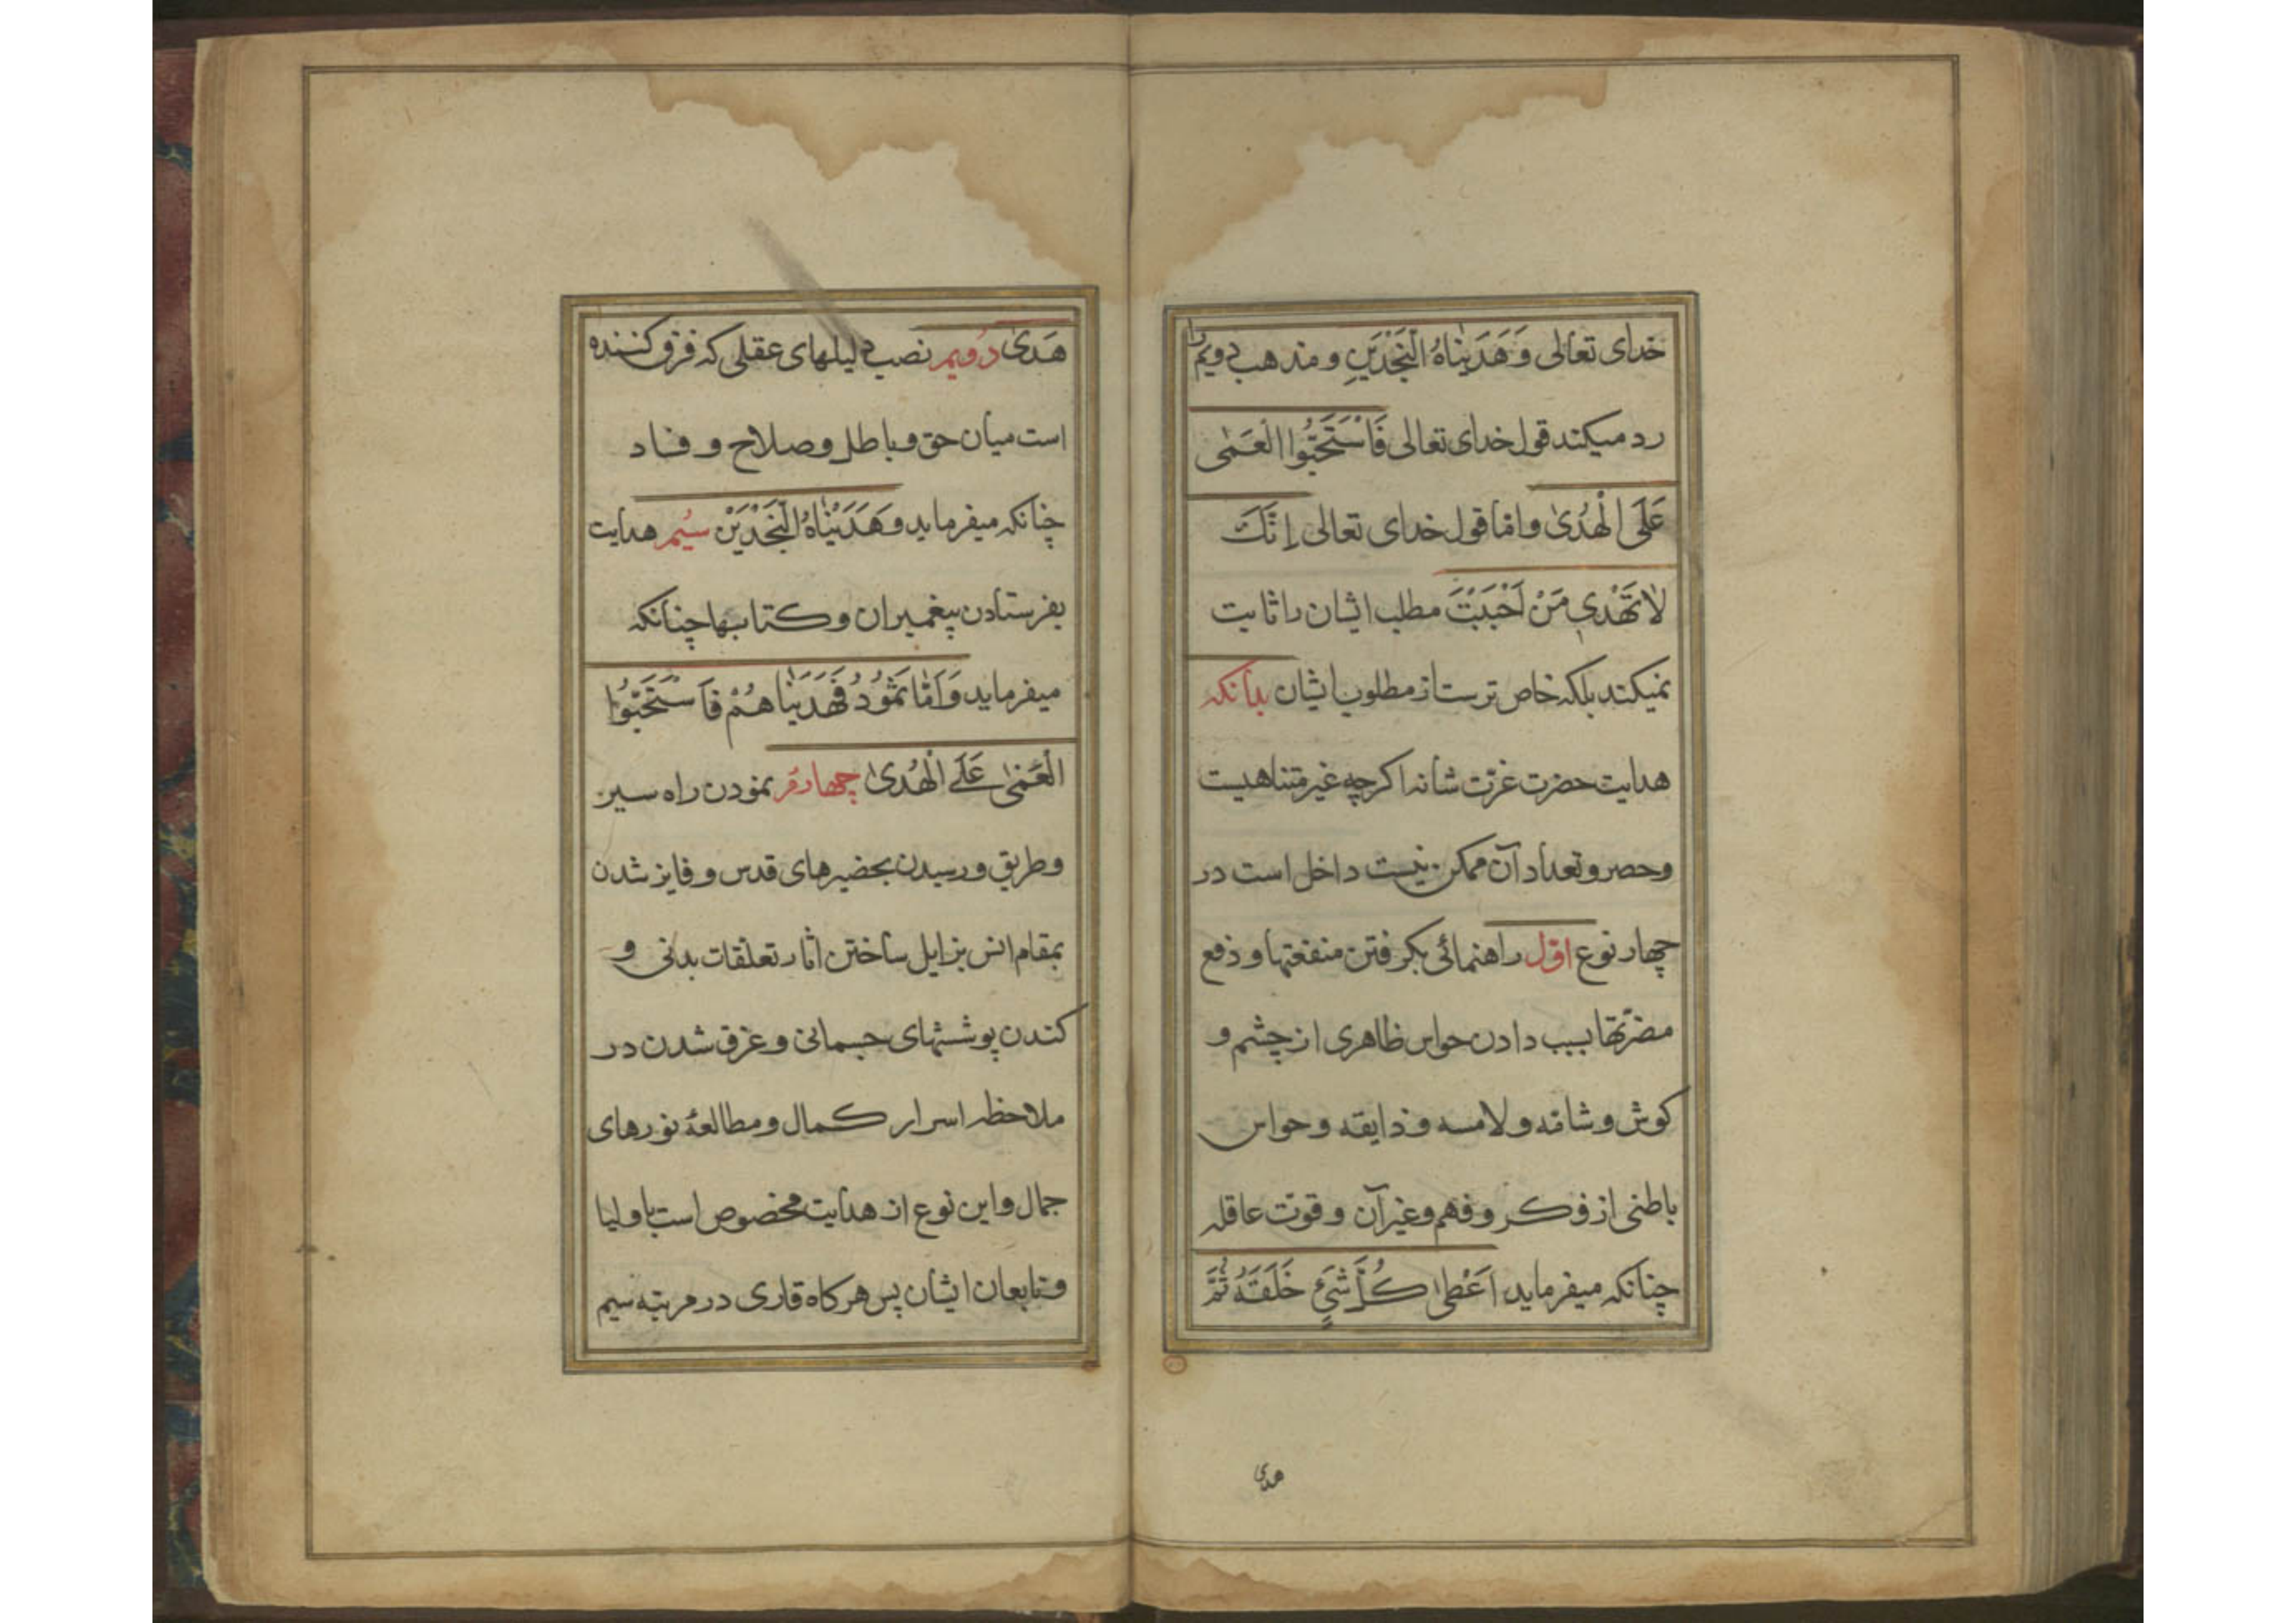 خدای تعالی وَهَدَیْنَاهُ النَّجْدَیْنِ و مذهب دویم را
رد میکند قول خدای تعالی فَاسْتَحَبُّوا الْعَمٰی
عَلَی الْهُدیٰ و امّا قول خدای تعالی اِنَّكَ
لاٰ تَهْدِی مَنْ اَحْبَبْتَ مطلب ایشان را ثابت
نمیکند بلکه خاص ترست از مطلوب ایشان بدانکه
هدایت حضرت عزّت شانه اکرچه غیر متناهیست
و حصر و تعداد آن ممکن نیست داخل است در
چهار نوع اوّل راهنمائی بکرفتن منفعتها و دفع
مضرّتها بسبب دادن حواس ظاهری از چشم و
کوش و شامّه و لامسه و ذایقه و حواس
باطنی از فکر و فهم و غیر آن و قوّت عاقله
چنانکه میفرماید اَعْطیٰ کُلَّ شَیْءٍ خَلَقَهُ ثُمَّ
هدی
هَدیٰ دویم نصب دلیلهای عقلی که فرق کننده
است میان حق و باطل و صلاح و فساد
چنانکه میفرماید وَهَدَیْنٰاهُ النَّجْدَیْنِ سیُم هدایت
بفرستادن پیغمبران و کتابها چنانکه
میفرماید وَاَمّٰا ثَمُودُ فَهَدَیْنٰاهُمْ فَاسْتَحَبُّوا
الْعَمیٰ عَلَی الْهُدیٰ چهارم نمودن راه سیر
و طریق و رسیدن بحضیرهای قدس و فایز شدن
بمقام انس بزایل ساختن اثار تعلّقات بدنی و
کندن پوششهای جسمانی و غرق شدن در
ملاحظه اسرار کمال و مطالعهٔ نورهای
جمال و این نوع از هدایت مخصوص است باولیا
و تابعان ایشان پس هرکاه قاری در مرتبه سیم